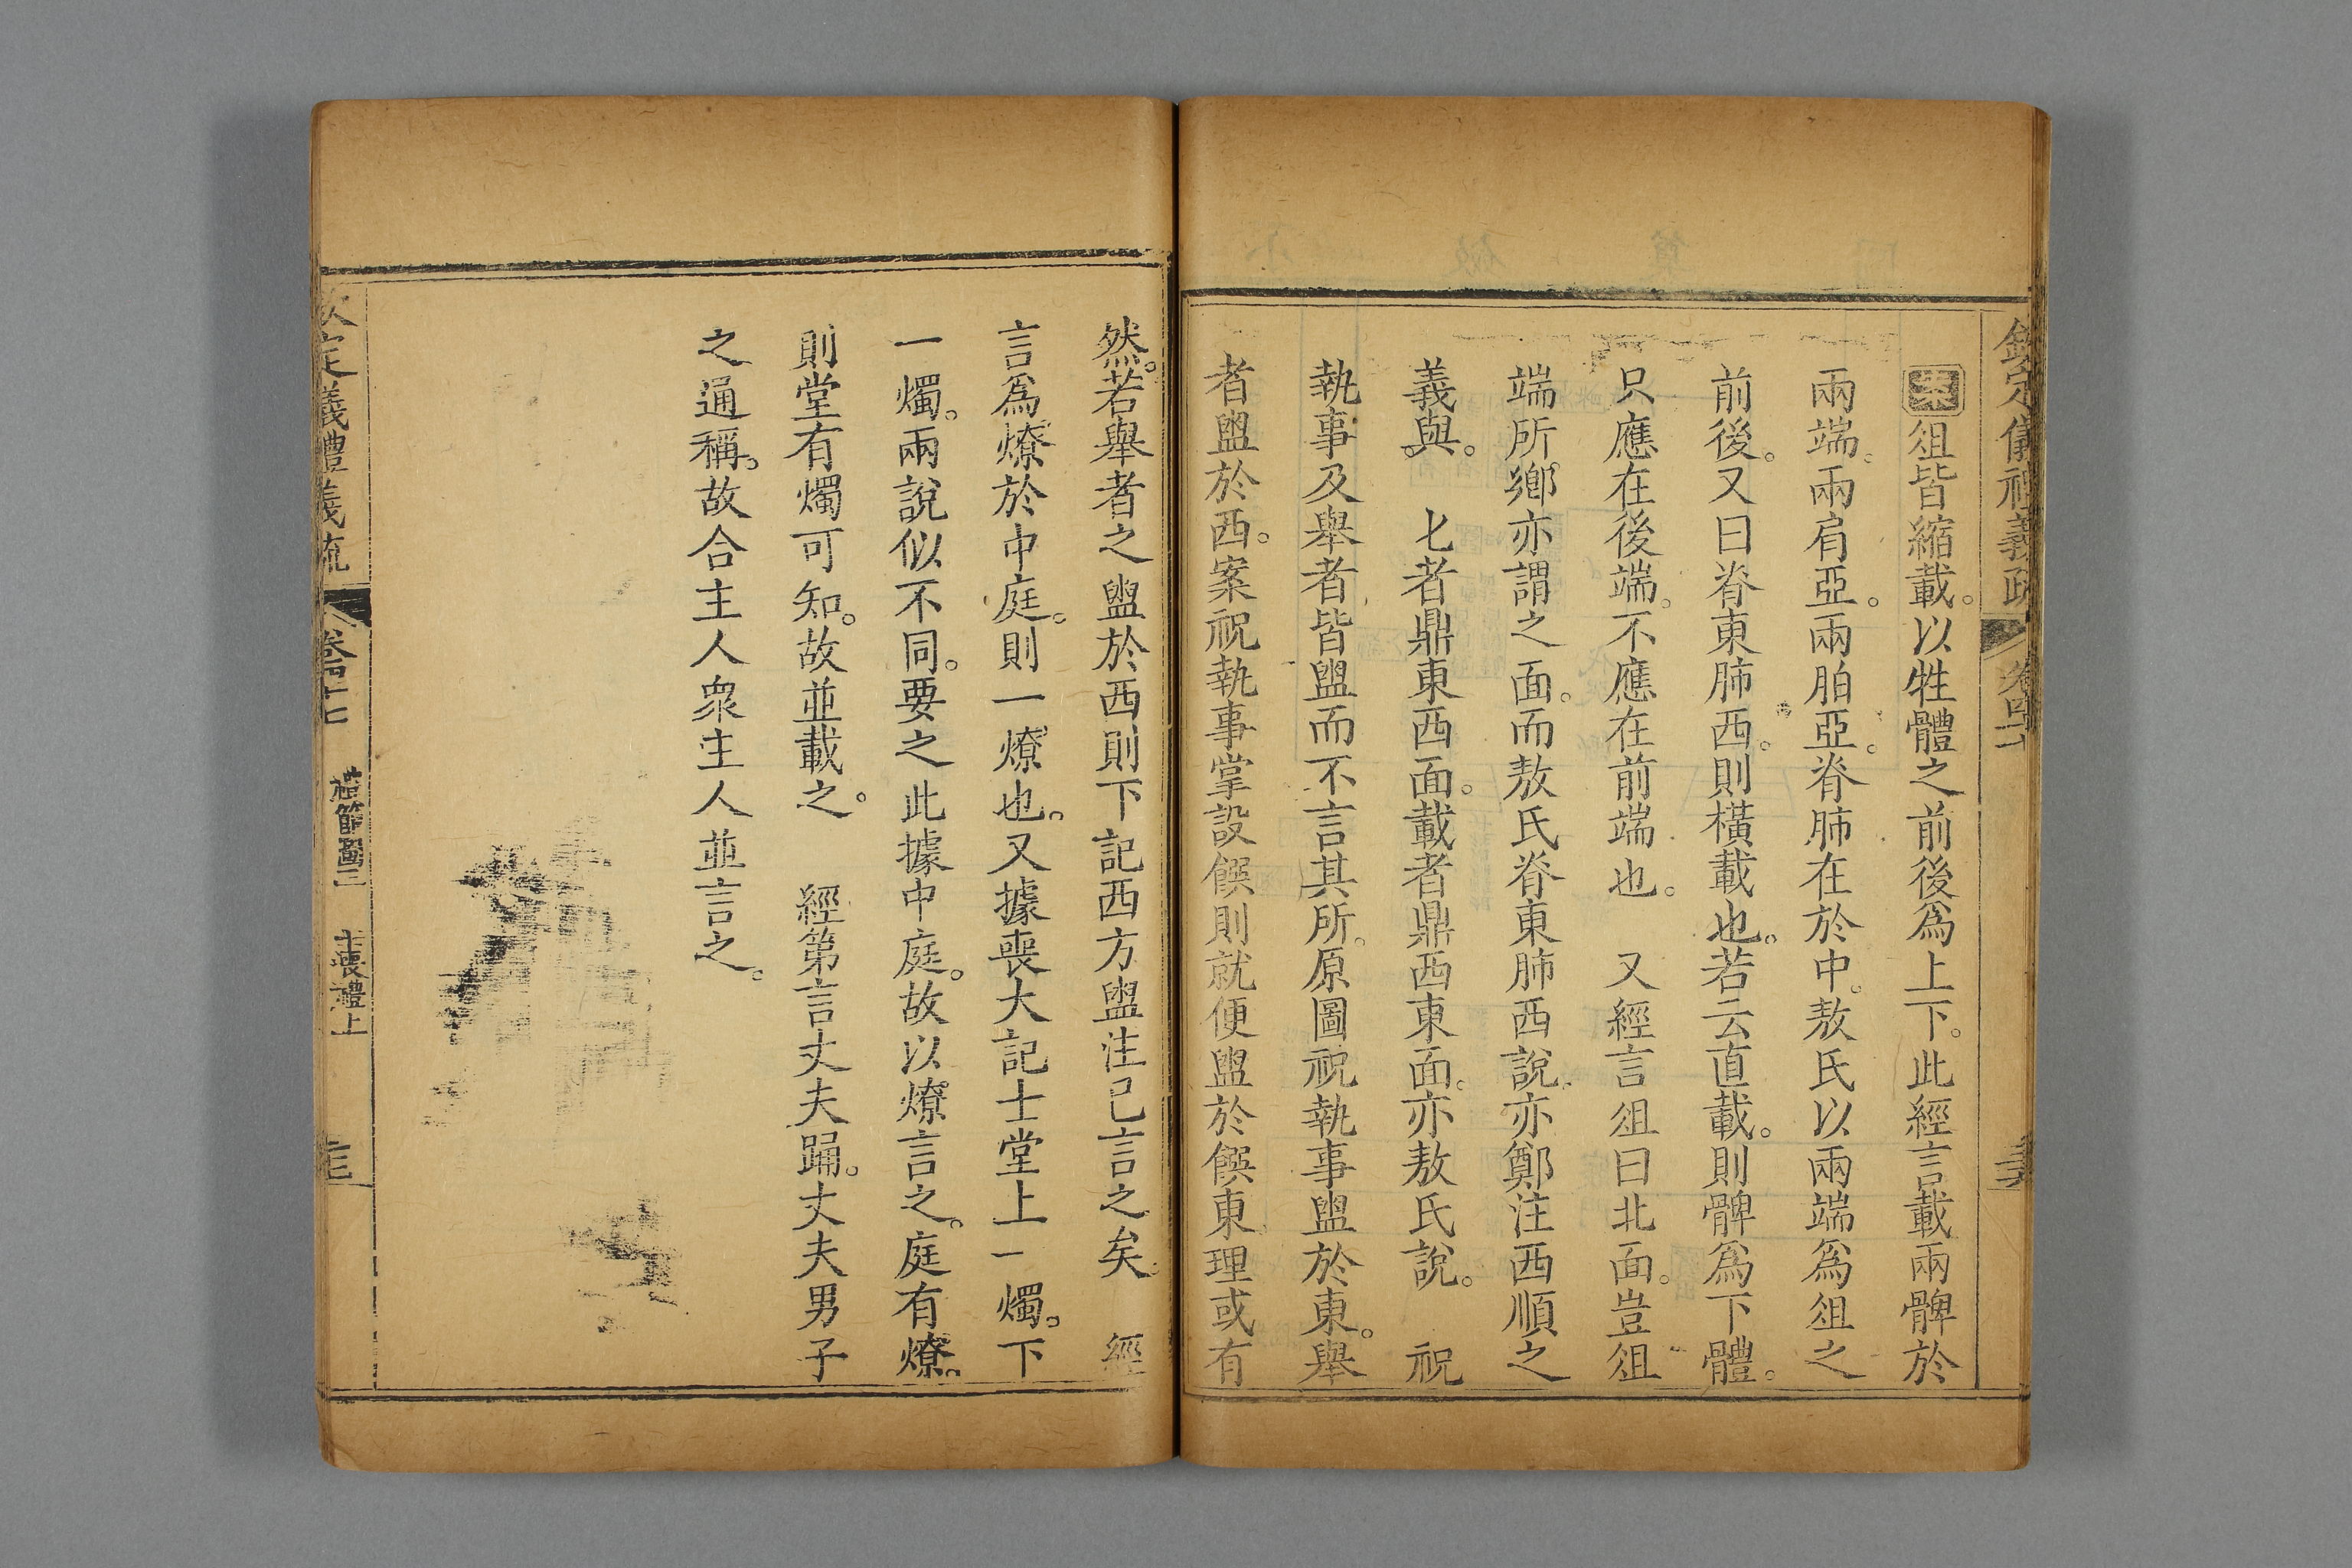 欽定儀禮義疏 卷四十七
案俎皆縮載。以牲體之前後爲上下。此經言載兩髀於
兩端。兩肩亞。兩胉亞。脊肺在於中。敖氏以兩端爲俎之
前後。又曰脊東肺西。則橫載也。若云直載。則髀爲下體。
只應在後端。不應在前端也。 又經言俎曰北面。豈俎
端所鄉亦謂之面。而敖氏脊東肺西說。亦鄭注西順之
義與。 匕者鼎東西面。載者鼎西東面。亦敖氏說。 祝
執事及舉者皆盥而不言其所。原圖祝執事盥於東。舉
者盥於西。案祝執事掌設饌則就便盥於饌東理或有
然。若舉者之盥於西則下記西方盥注已言之矣。 經
言爲燎於中庭。則一燎也。又據喪大記士堂上一燭。下
一燭。兩說似不同。要之此據中庭。故以燎言之。庭有燎。
則堂有燭可知。故並載之。 經第言丈夫踊。丈夫男子
之通稱。故合主人衆主人並言之。
欽定儀禮義疏 卷四十七 禮節圖三 士喪禮上